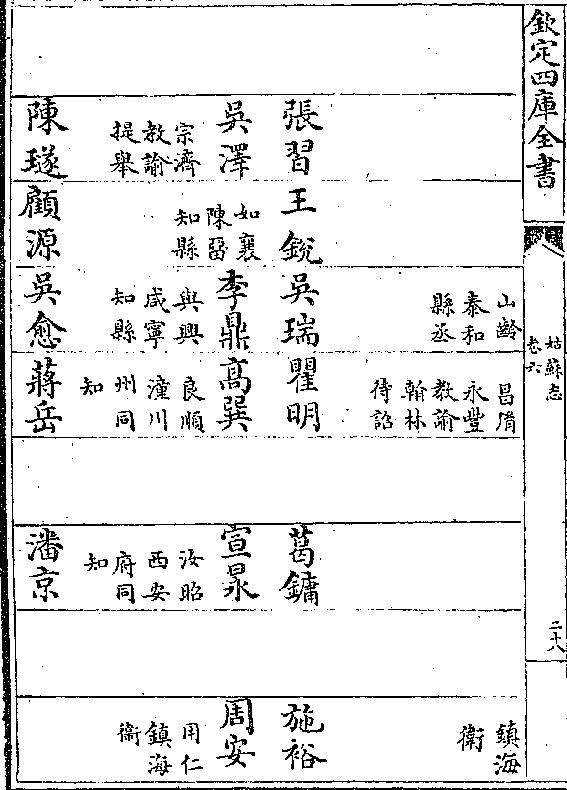 欽定四庫全書
姑蘇志
卷六
二十八
張習
吳澤
宗濟
教諭
提舉
陳璲
王銳
如襄
陳畱
知縣
顧源
山齡
泰和
縣丞
吳瑞
李鼎
與興
咸寧
知縣
吳愈
昌脩
永豐
教諭
翰林
待詔
瞿明
高巽
良順
潼川
州同
知
蔣岳
葛鏞
宣
汝昭
西安
府同
知
潘京
鎮海
衞
施裕
周安
用仁
鎮海
衞